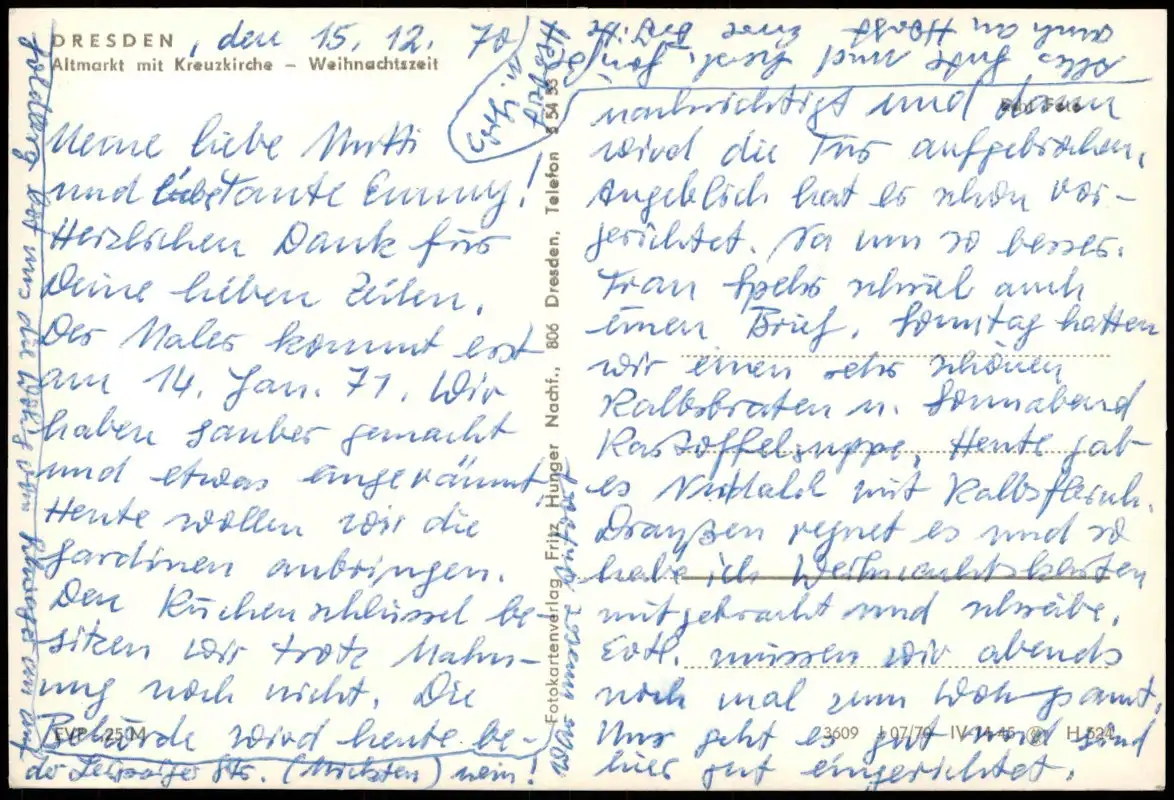 DRESDEN, den 15. 12. 70
Altmarkt mit Kreuzkirche – Weihnachtszeit
Meine liebe Mutti
und liebe Tante Emmy!
Herzlichen Dank für
Deine lieben Zeilen.
Der Maler kommt erst
am 14. Jan. 71. Wir
haben sauber gemacht
und etwas eingeräumt.
Heute wollen wir die
Gardinen anbringen.
Den Küchenschlüssel be-
sitzen wir trotz Mahn-
ung noch nicht. Die
Behörde wird heute be-
nachrichtigt und dann
wird die Tür aufgebrochen.
Angeblich hat es schon vor-
gerichtet. Na um so besser.
Frau Spehr schrieb auch
einen Brief. Sonntag hatten
wir einen sehr schönen
Kalbsbraten u. Sonnabend
Kartoffelsuppe. Heute gab
es mit Kalbsfleisch.
Draußen regnet es und so
habe ich Weihnachtskarten
mitgebracht und schreibe.
Evtl. müssen wir abends
noch mal zum Wohngsamt.
Uns geht es gut und sind
hier gut eingerichtet.
Alles Gute und herzl.
auch an Horst Eure
u.
hat nun die Wohng. vom
der Leipziger Str. (Mickten) nein!
waren
Fotokartenverlag Fritz Hunger Nachf., 806 Dresden, Telefon 5 54 55
EVP 25 M
3609 I 07/70 IV-14-45 H 524